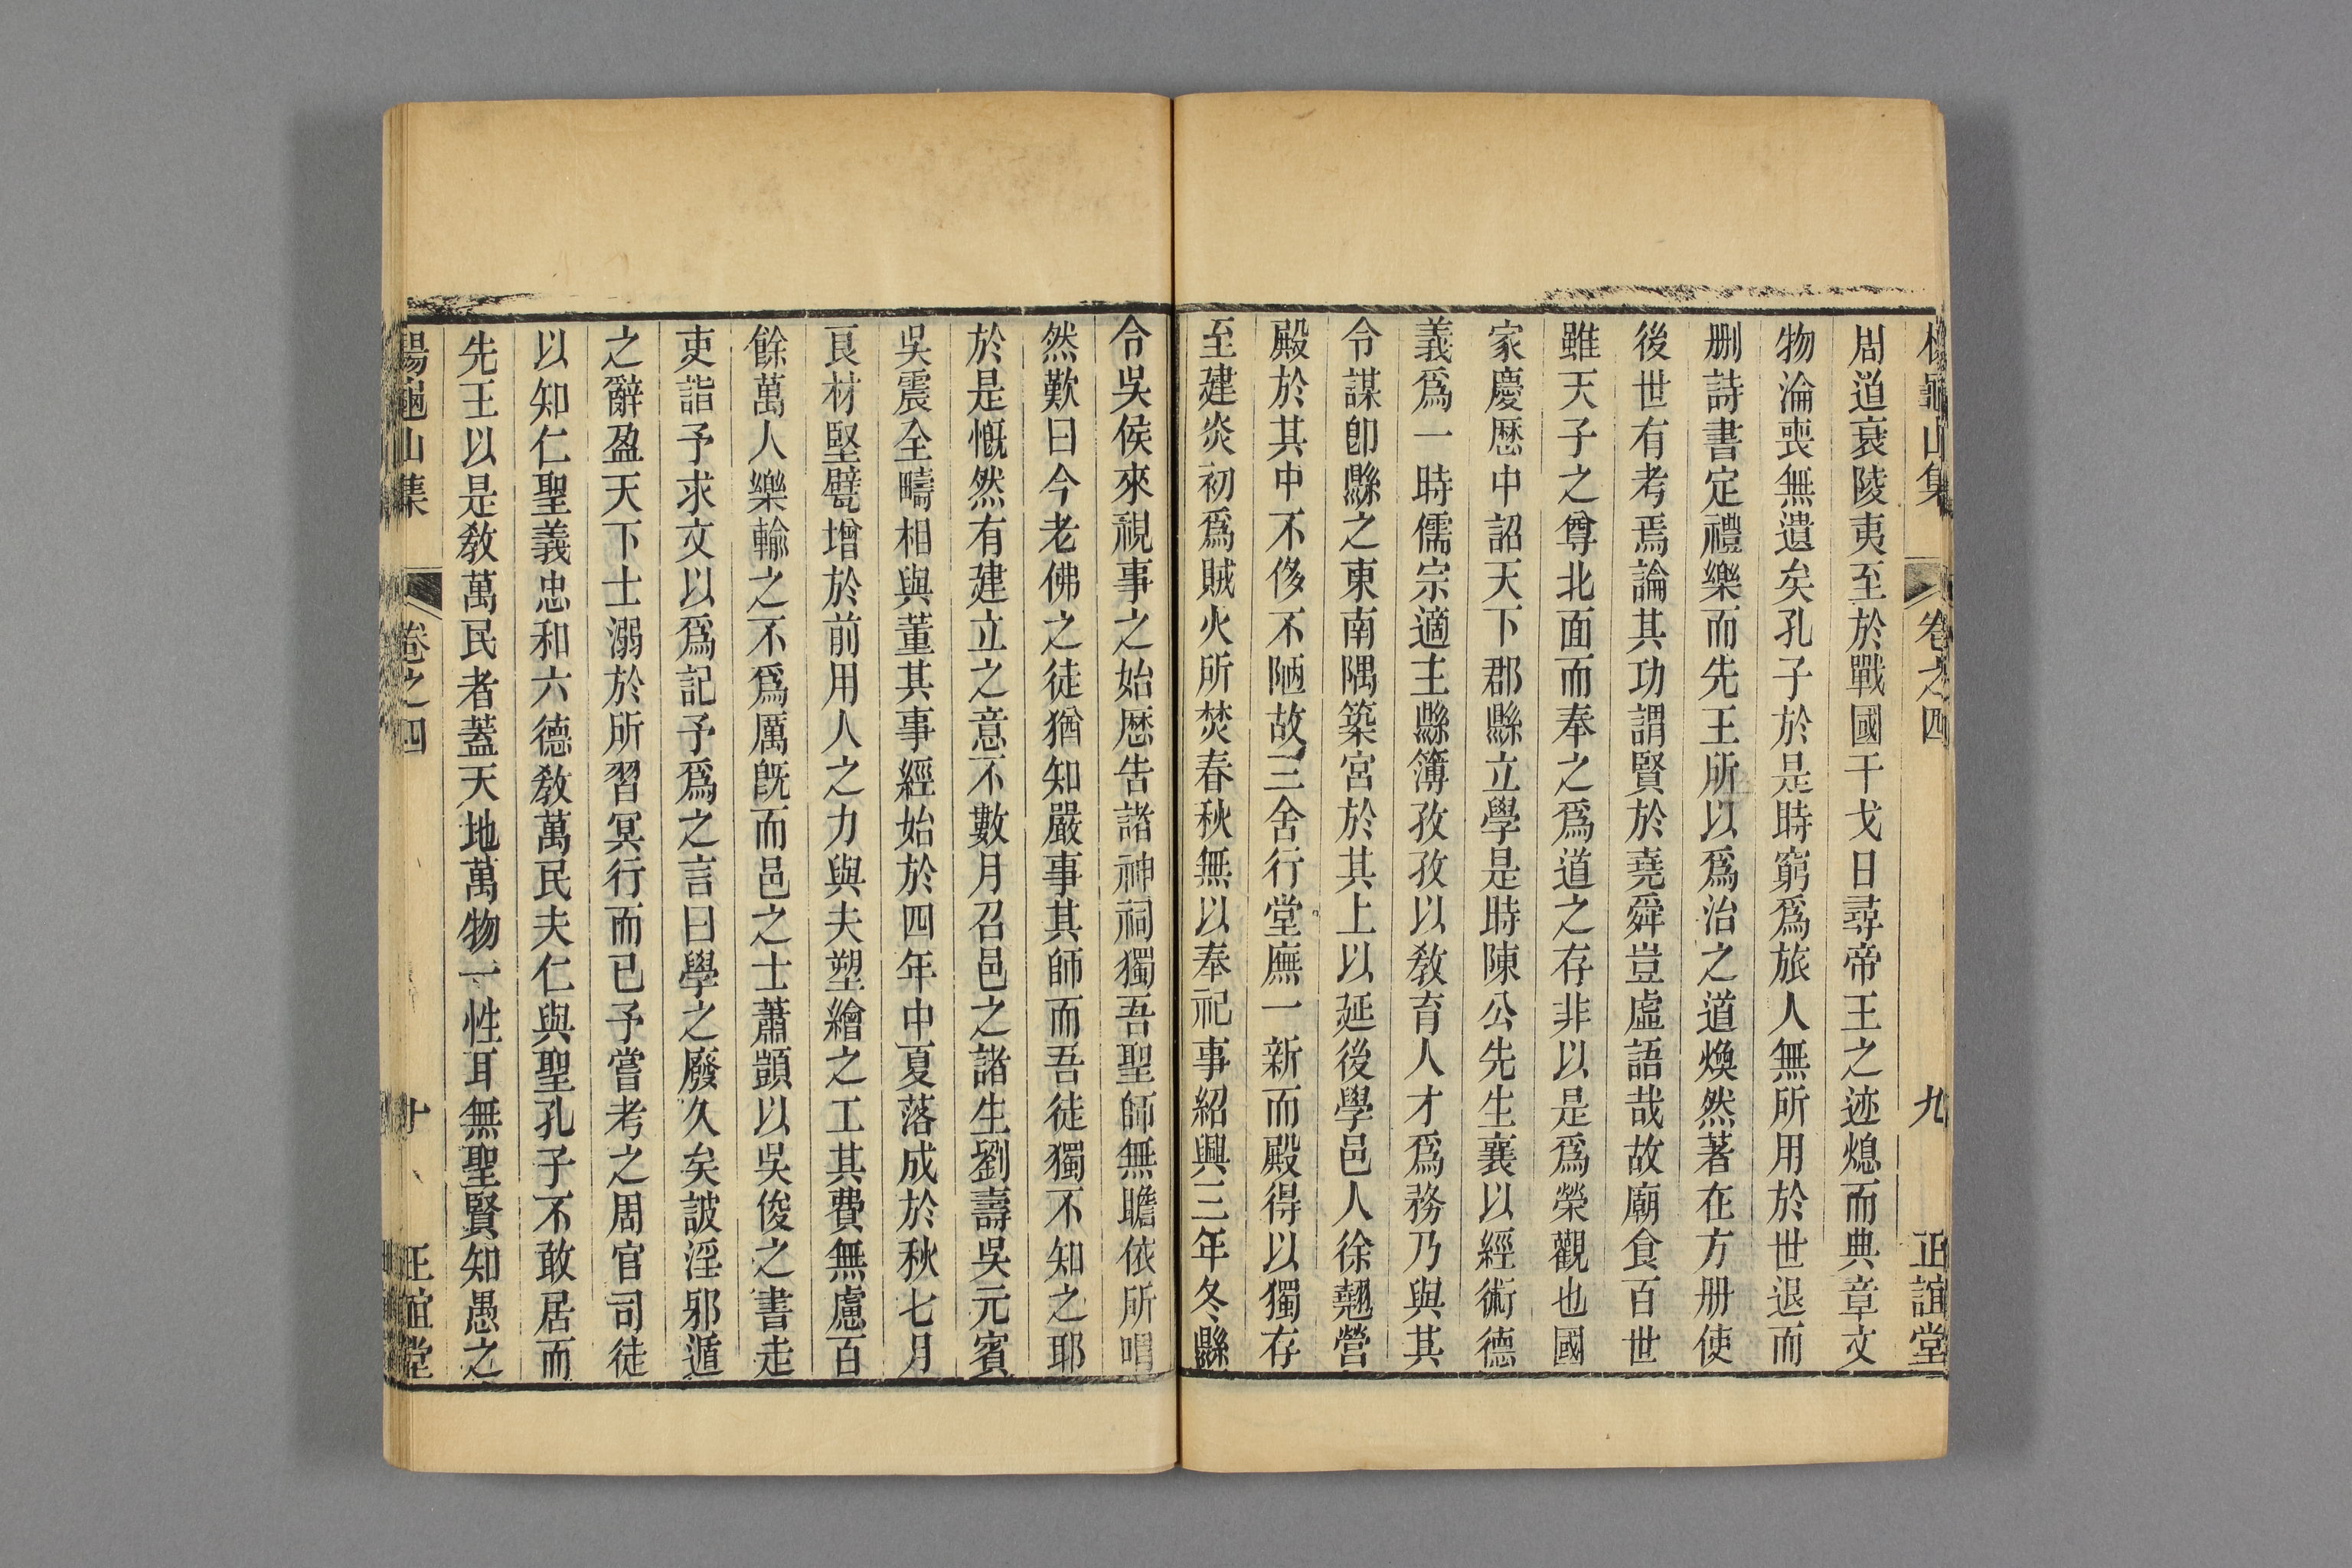 楊龜山集 卷之四 九 正誼堂
周道衰陵夷至於戰國干戈日尋帝王之迹熄而典章文
物淪喪無遺矣孔子於是時窮爲旅人無所用於世退而
删詩書定禮樂而先王所以爲治之道煥然著在方册使
後世有考焉論其功謂賢於堯舜豈虛語哉故廟食百世
雖天子之尊北面而奉之爲道之存非以是爲榮觀也國
家慶歷中詔天下郡縣立學是時陳公先生襄以經術德
義爲一時儒宗適主縣簿孜孜以敎育人才爲務乃與其
令謀卽縣之東南隅築宮於其上以延後學邑人徐翹營
殿於其中不侈不陋故三舍行堂廡一新而殿得以獨存
至建炎初爲賊火所焚春秋無以奉祀事紹興三年冬縣
令吳侯來視事之始歷告諸神祠獨吾聖師無瞻依所喟
然歎曰今老佛之徒猶知嚴事其師而吾徒獨不知之耶
於是慨然有建立之意不數月召邑之諸生劉壽吳元賓
吳震全疇相與董其事經始於四年中夏落成於秋七月
良材堅甓增於前用人之力與夫塑繪之工其費無慮百
餘萬人樂輸之不爲厲旣而邑之士蕭顗以吳俊之書走
吏詣予求文以爲記予爲之言曰學之廢久矣詖淫邪遁
之辭盈天下士溺於所習冥行而已予嘗考之周官司徒
以知仁聖義忠和六德敎萬民夫仁與聖孔子不敢居而
先王以是敎萬民者蓋天地萬物一性耳無聖賢知愚之
楊龜山集 卷之四 十 正誼堂